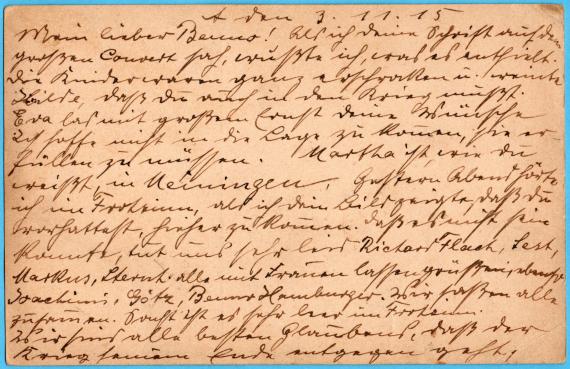 A den 3. 11. 15
Mein lieber Benno! Als ich deine Schrift auf dem
großen Couvert sah, wußte ich, was es enthielt.
Die Kinder waren ganz erschrocken u. weinte
Hilde, daß du auch in den Krieg mußt.
Eva las mit großem Ernst deine Wünsche
Ich hoffe nicht in die Lage zu kommen, sie er-
füllen zu müssen. Martha ist, wie du
weißt, in Meiningen. Gestern Abend hörte
ich im, als ich dein Bild zeigte, daß du
vorhattest, hieher zu kommen. Daß es nicht sein
konnte, tut uns sehr leid Richard Flach, Lest,
Markus, alle mit Frauen lassen grüßen, ebenso
Joachimi, Götz, Benno Hamburger. Wir saßen alle
zusammen. Sonst ist es sehr leer im
Wir sind alle besten Glaubens, daß der
Krieg seinem Ende entgegen geht,